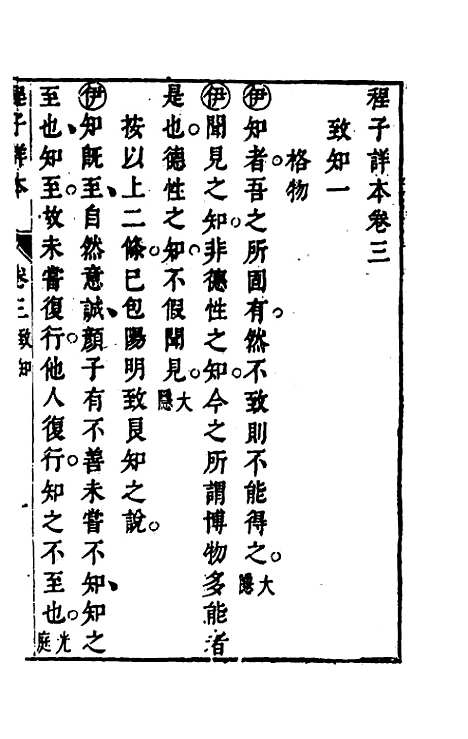 程子詳本卷三
致知一
格物
伊知者吾之所固有然不致則不能得之。大隱
伊聞見之知。非德性之知。今之所謂博物多能者
是也。德性之知。不假聞見。大隱
按以上二條。已包陽明致良知之說。
伊知既至、自然意誠、顏子有不善未嘗不知、知之
至也、知至。故未嘗復行。他人復行。知之不至也。光庭
程子詳本 卷三致知